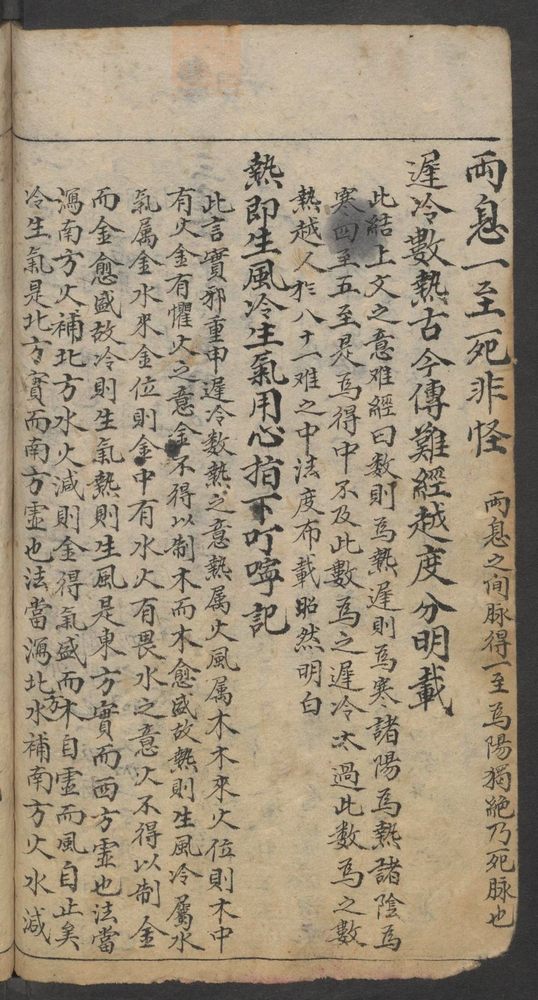 兩息一至死非怪 兩息之间脉得一至爲陽獨絶乃死脉也
遲冷數熱古今傳難經越度分明載
此結上文之意难經曰数則爲熱遲則爲寒諸陽爲熱諸陰爲
寒四至五至是爲得中不及此數爲之遲冷太過此数爲之數
熱越人於八十一难之中法度布載昭然明白
熱即生風冷生氣用心指下叮嚀記
此言實邪重申遲冷数熱之意熱属火風属木木來火位則木中
有火金有懼火之意金不得以制木而木愈盛故熱則生風冷屬水
氣属金水來金位則金中有水火有畏水之意火不得以制金
而金愈盛故冷則生氣熱則生風是東方實而西方虛也法當
瀉南方火補北方水火減則金得氣盛而木自虛而風自止矣
冷生氣是北方實而南方虛也法當瀉北方水補南方火水減